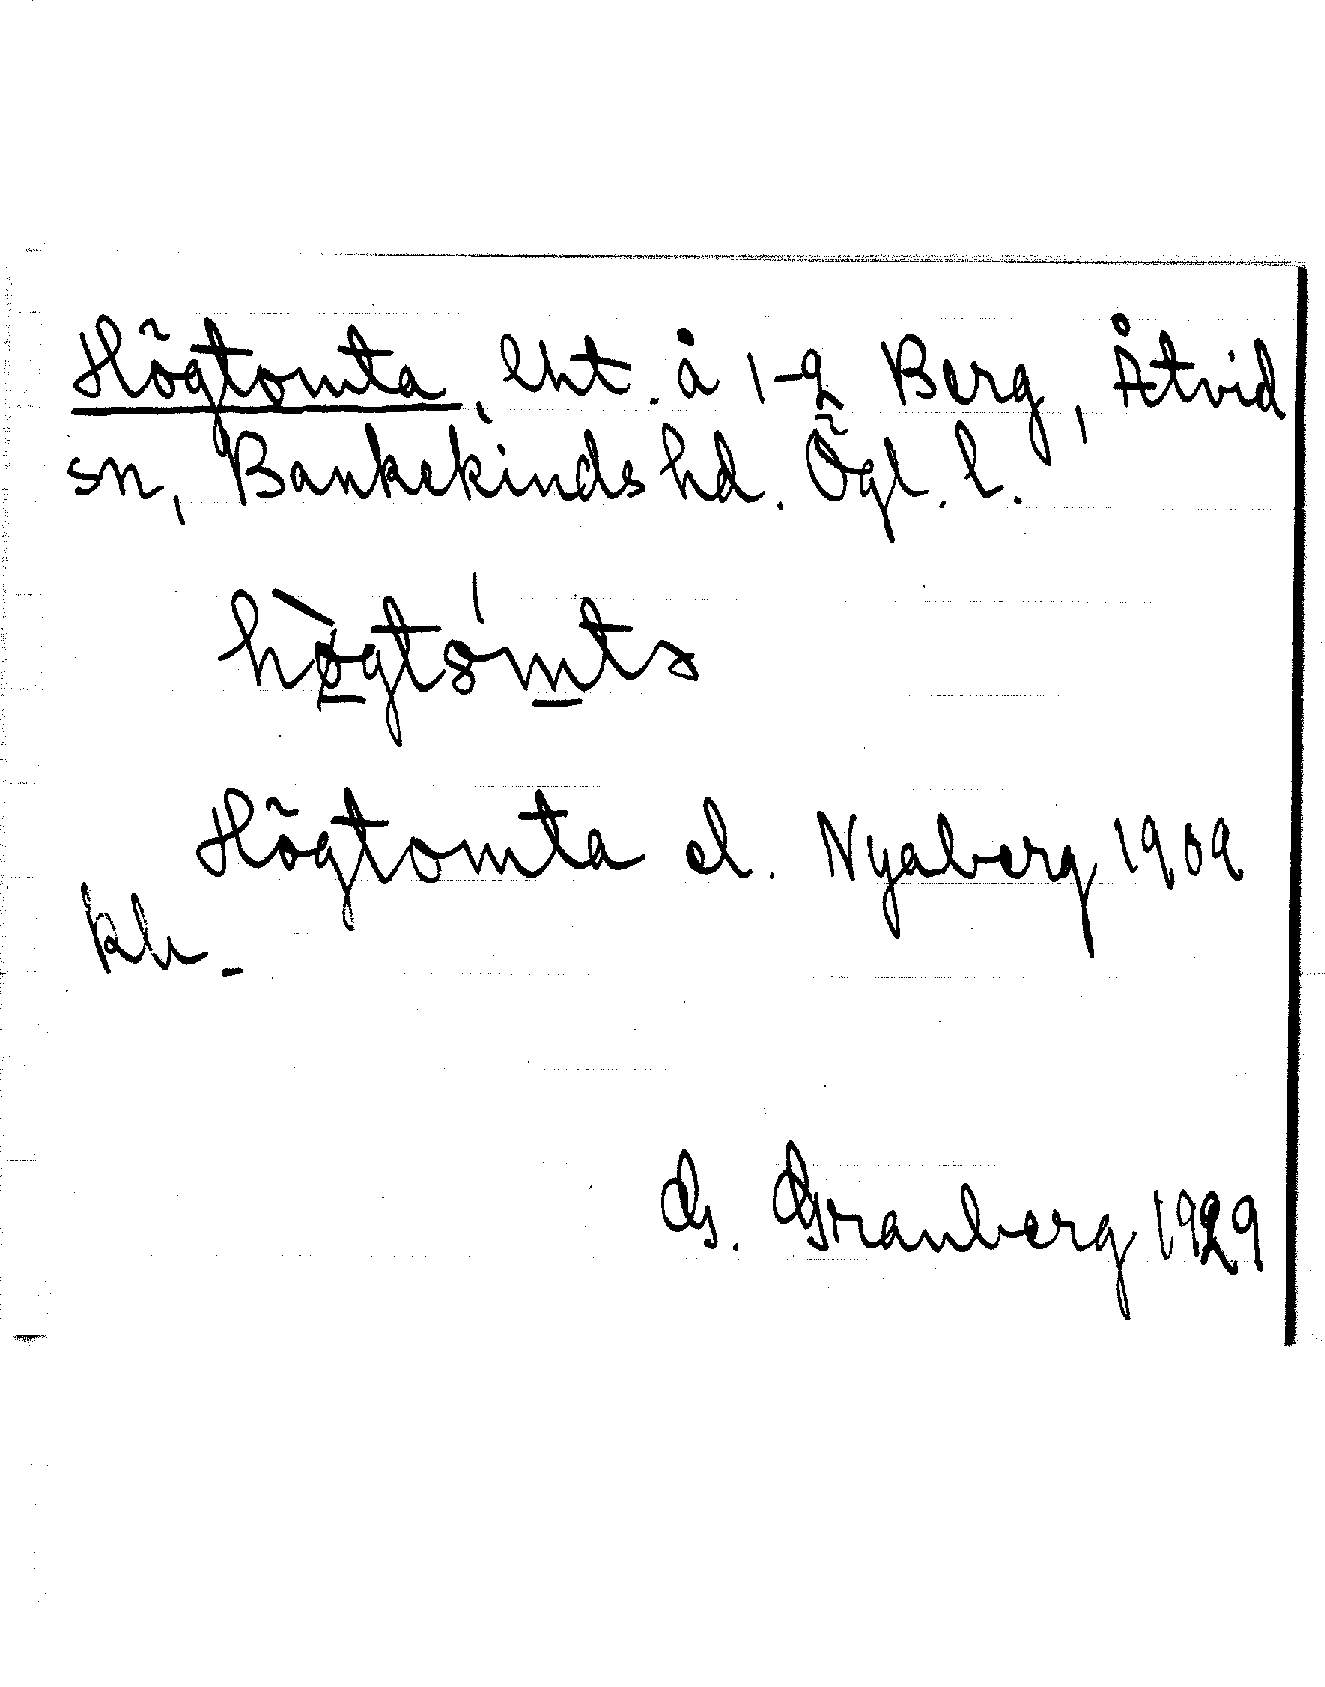 Högtomta, lht. å 1-2 Berg, Åtvid
sn, Bankekinds hd. Ögl. l.
hø̀gtómta
Högtomta el. Nyaberg 1909
kb.
G. Granberg 1929